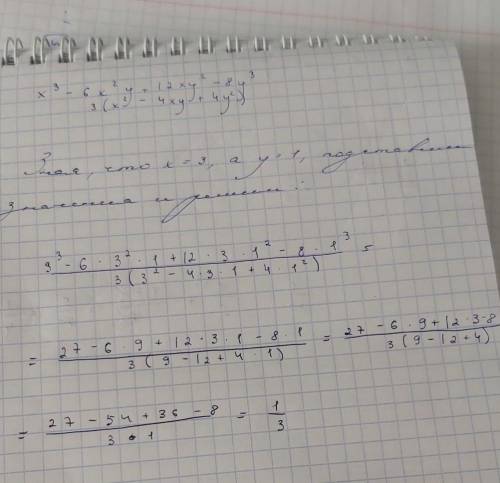 x³ - 6x²y + 12xy² - 8y³
3(x² - 4xy + 4y²)
Зная, что x = 3, а y = 1, подставим
значения и решим:
3³ - 6 · 3² · 1 + 12 · 3 · 1² - 8 · 1³
3(3² - 4 · 3 · 1 + 4 · 1²)
=
= 27 - 6 · 9 + 12 · 3 · 1 - 8 · 1
3(9 - 12 + 4 · 1)
= 27 - 6 · 9 + 12 · 3 - 8
3(9 - 12 + 4)
= 27 - 54 + 36 - 8
3 · 1
= 1
3